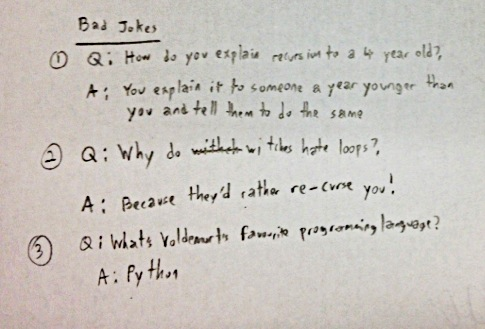 Bad Jokes
① Q: How do you explain recursion to a 4 year old?,
A: You explain it to someone a year younger than
you and tell them to do the same
② Q: Why do witches hate loops?,
A: Because they'd rather re-curse you!
③ Q: Whats Voldemorts favourite programming language?
A: Python